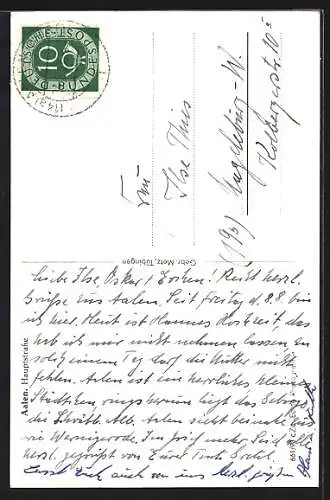 DEUTSCHE BUNDESPOST
10
Frau
Ilse Thies
(19b) Magdeburg-W.
Kolbergerstr. 10
Gebr. Metz, Tübingen
Aalen. Hauptstraße
Liebe Ilse, Oskar! Recht herzl.
Grüße aus Aalen. Seit Freitag d. 8.8. bin
ich hier. Heut ist Hannes Hochzeit, das
hab ich mir nicht nehmen lassen, an
solch einem Tag darf die Mutter nicht
fehlen. Aalen ist ein herrliches kleines
Städtchen ringsherum liegt das
die Schwäb. Alb. Aalen sieht beinahe aus
wie Wernigerode. Seid alle
herzl. gegrüßt von Eurer
Lasst Euch auch von uns herzl. grüßen